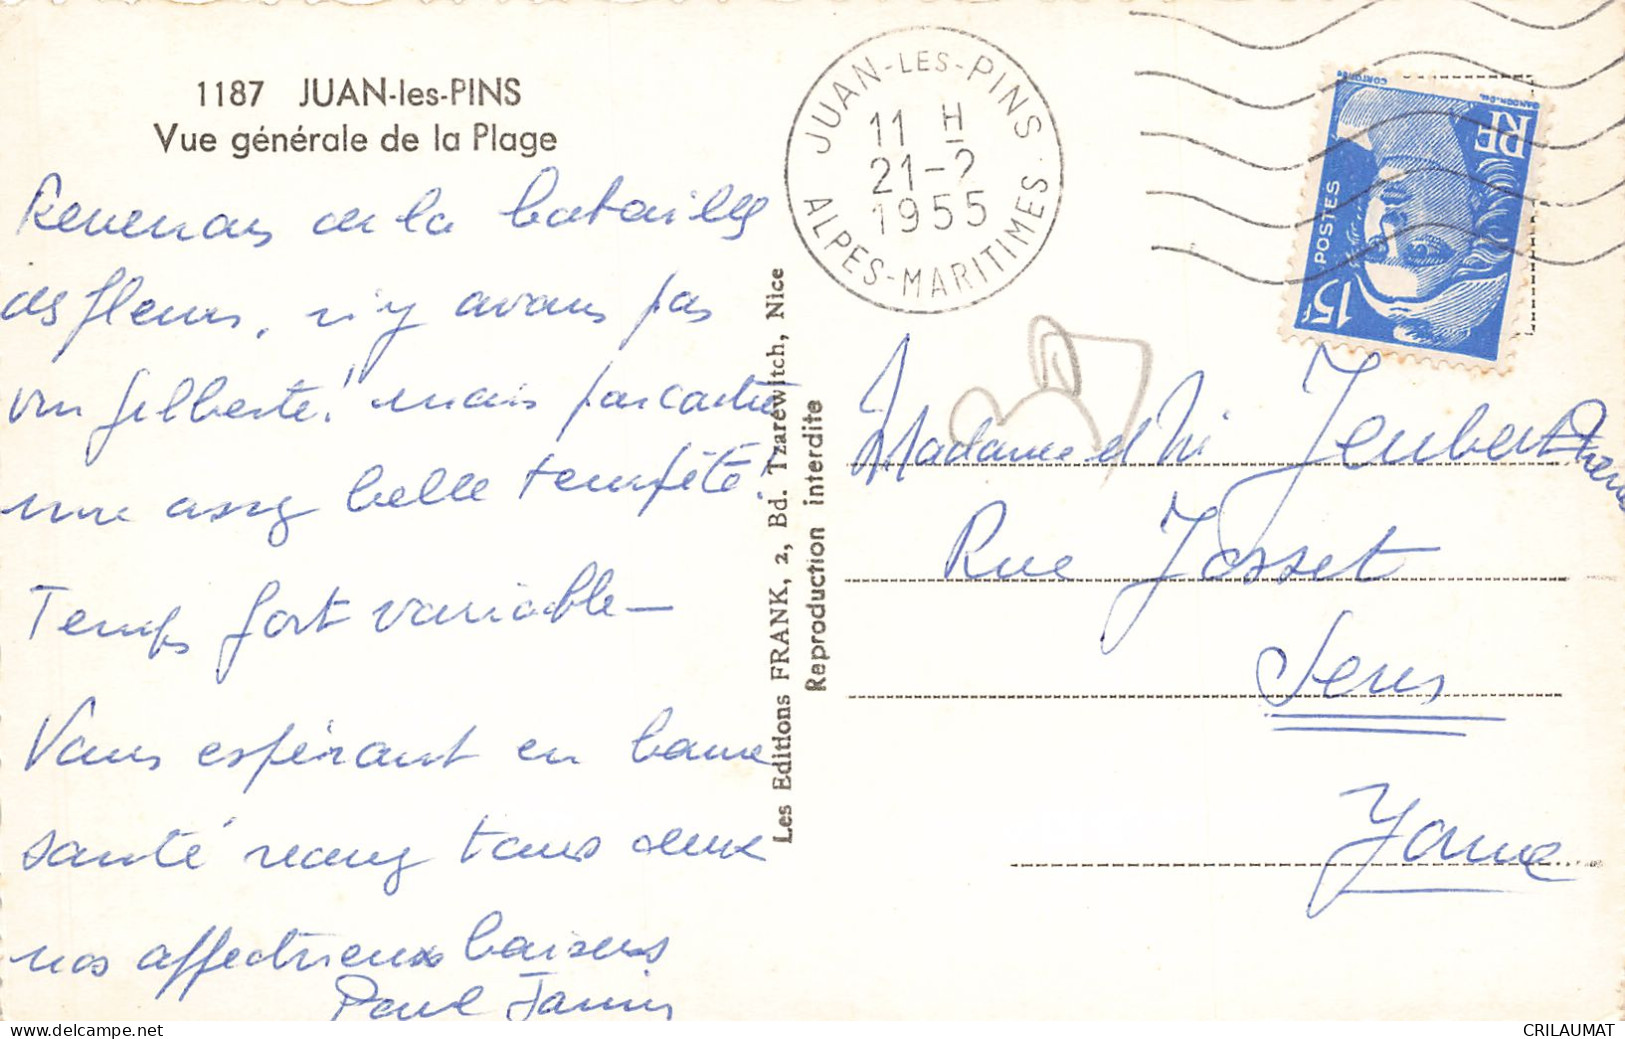 1187 JUAN-les-PINS
Vue générale de la Plage
Revenons de la bataille
des fleurs, n'y avons pas
vu Gilberte! mais par contre
une assez belle tempête!
Temps fort variable—
Vous espérant en bonne
santé recevez tous deux
nos affectueux baisers
Paul
Les Editions FRANK, 2, Bd. Tzarewitch, Nice
Reproduction interdite
JUAN-LES-PINS
11 H
21-2
1955
ALPES-MARITIMES
RF
POSTES
15F
Madame et Mr
Rue Josset
Sens
Yonne
CRILAUMAT